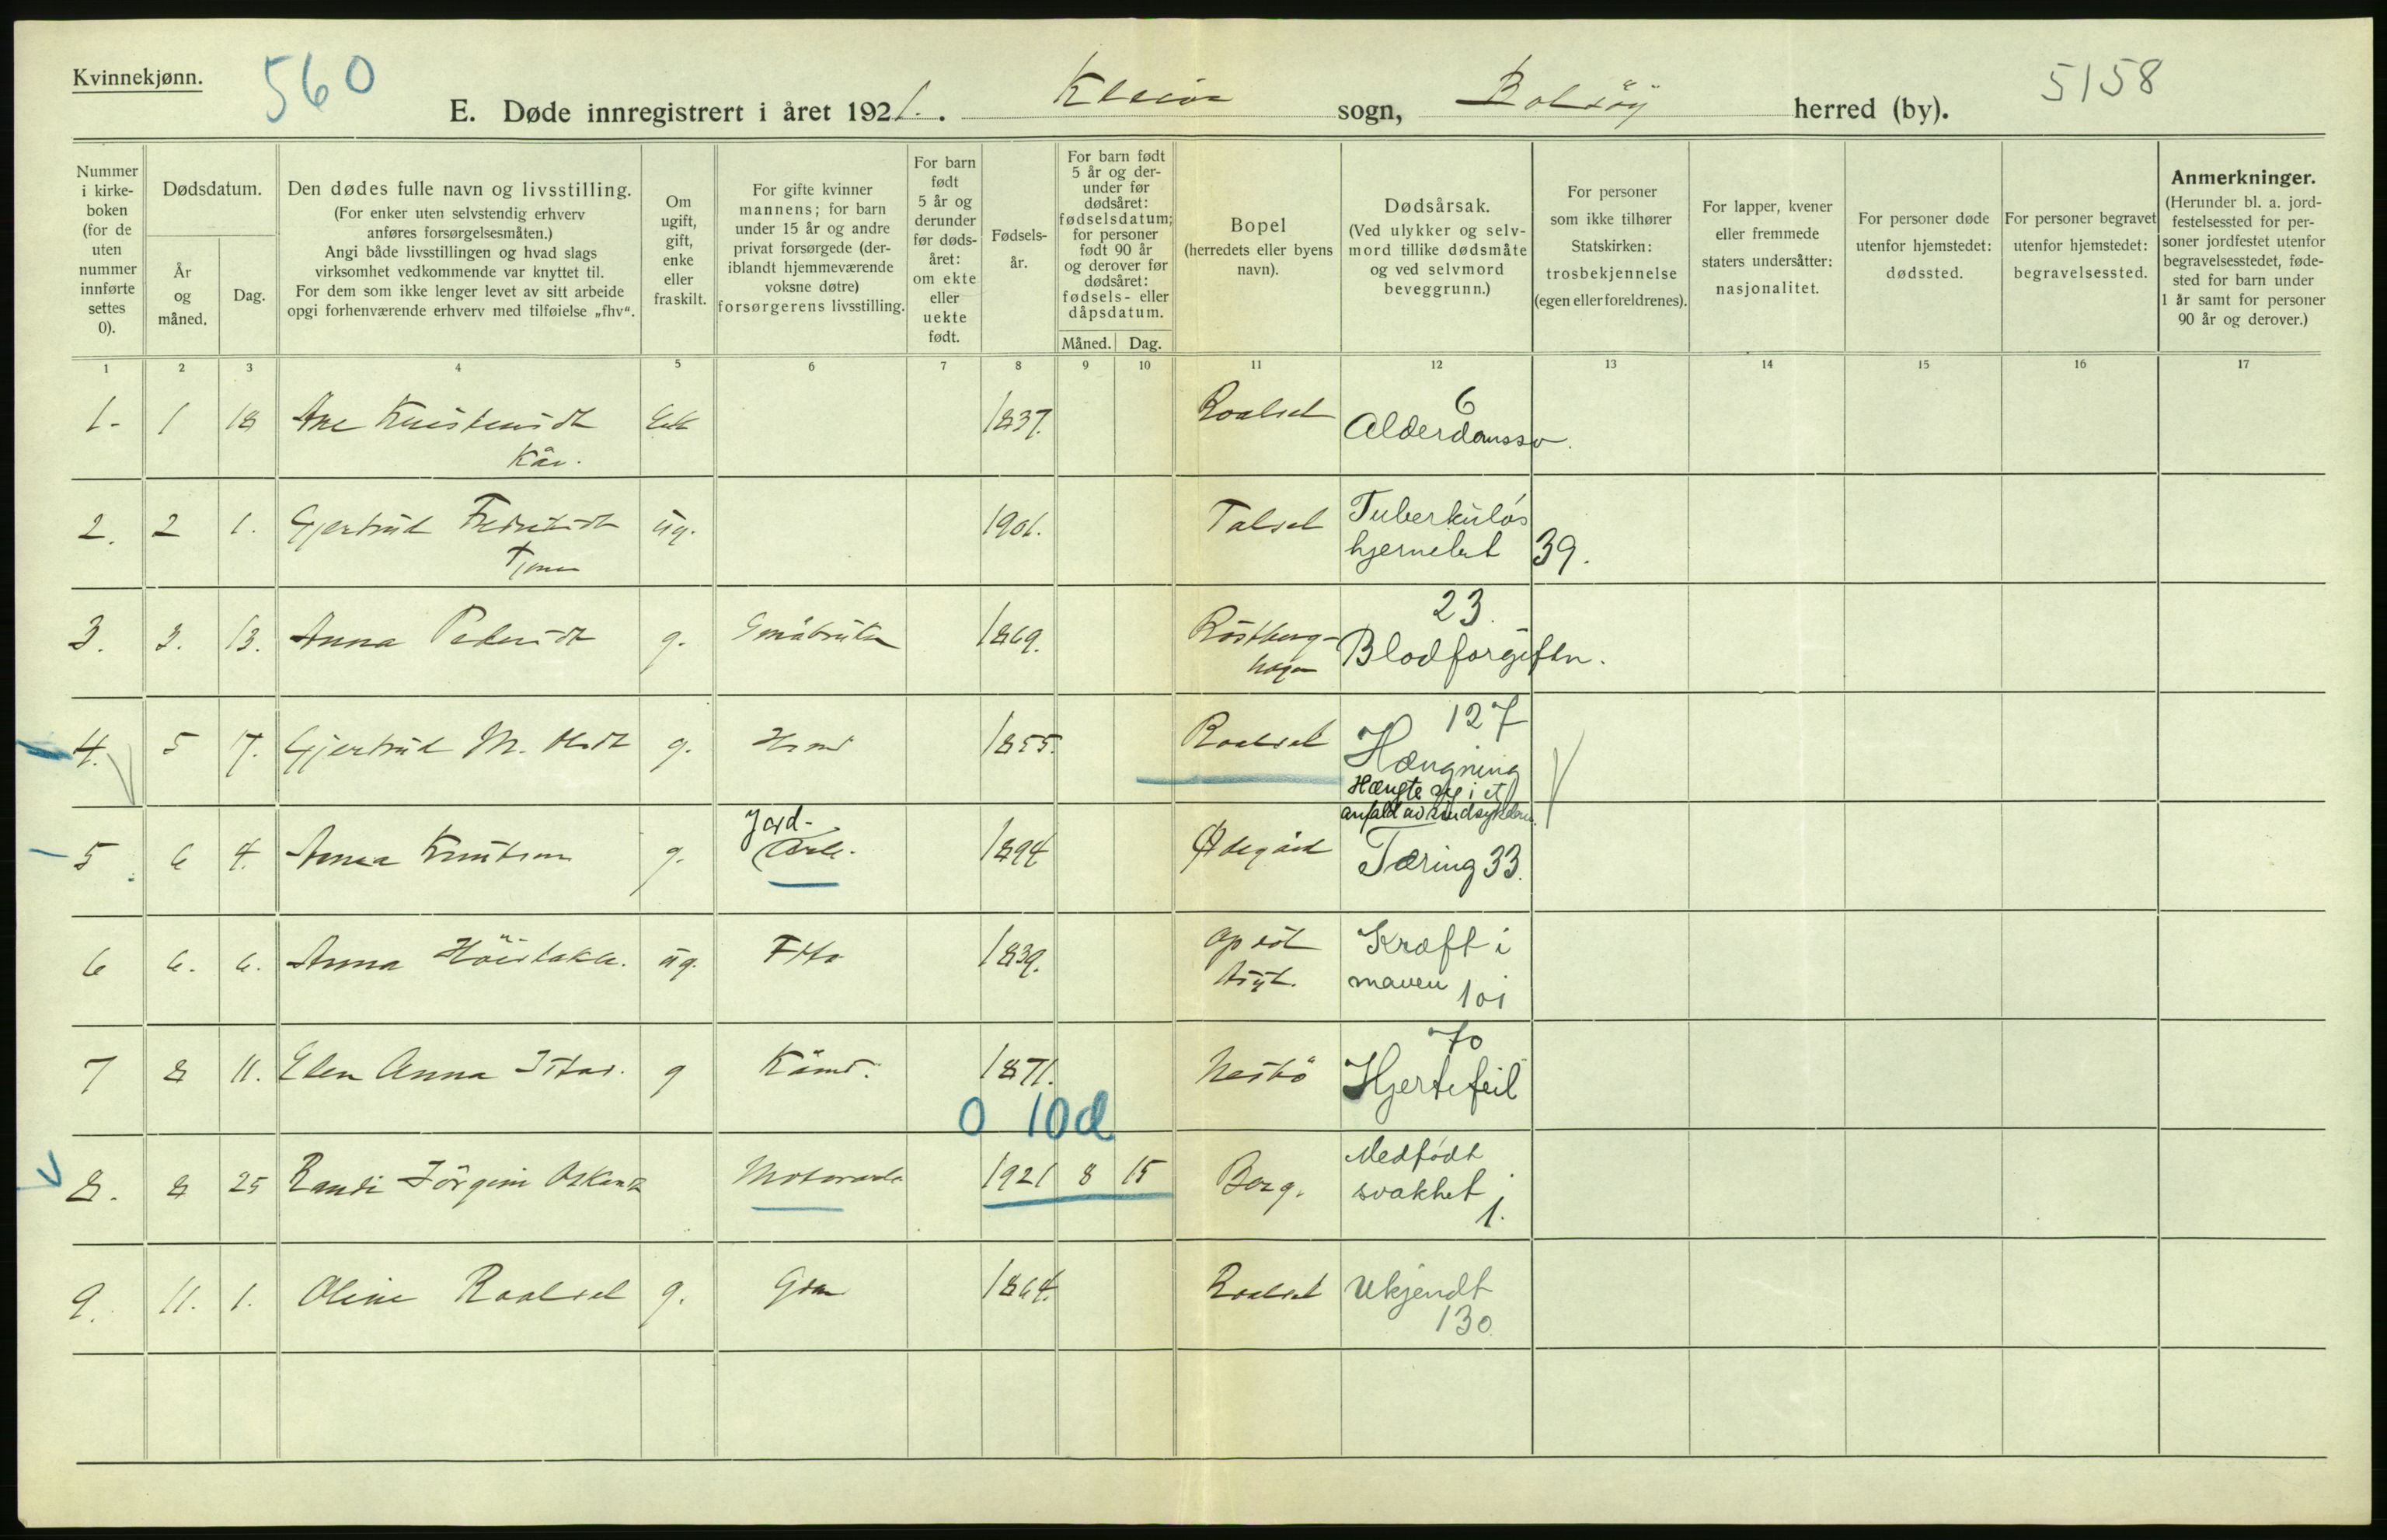 Kvinnekjønn.
560
5158
E. Døde innregistrert i året 1921. Kleive sogn, Bolsöy herred (by).
Nummer i kirkeboken (for de uten nummer innførte settes 0).
Dødsdatum.
År og måned.
Dag.
Den dødes fulle navn og livsstilling.
(For enker uten selvstendig erhverv anføres forsørgelsesmåten.)
Angi både livsstillingen og hvad slags virksomhet vedkommende var knyttet til.
For dem som ikke lenger levet av sitt arbeide opgi forhenværende erhverv med tilføielse „fhv“.
Om ugift, gift, enke eller fraskilt.
For gifte kvinner mannens; for barn under 15 år og andre privat forsørgede (deriblandt hjemmeværende voksne døtre) forsørgerens livsstilling.
For barn født 5 år og derunder før dødsåret: om ekte eller uekte født.
Fødselsår.
For barn født 5 år og derunder før dødsåret: fødselsdatum; for personer født 90 år og derover før dødsåret: fødsels- eller dåpsdatum.
Måned. Dag.
Bopel (herredets eller byens navn).
Dødsårsak. (Ved ulykker og selvmord tillike dødsmåte og ved selvmord beveggrunn.)
For personer som ikke tilhører Statskirken: trosbekjennelse (egen eller foreldrenes).
For lapper, kvener eller fremmede staters undersåtter: nasjonalitet.
For personer døde utenfor hjemstedet: dødssted.
For personer begravet utenfor hjemstedet: begravelsessted.
Anmerkninger.
(Herunder bl. a. jordfestelsessted for personer jordfestet utenfor begravelsesstedet, fødested for barn under 1 år samt for personer 90 år og derover.)
1 2 3 4 5 6 7 8 9 10 11 12 13 14 15 16 17
1. 1 18 Ane Kristensdt Enk 1837. Roalset 6 Alderdomssv.
Kår.
2. 2 1. Gjertrud ug. 1901. Talset Tuberkuløs
hjernebet 39.
3. 3. 13. Anna Pedersdt g. Småbruker 1869. 23.
Blodforgiftn.
4. 5 17. Gjertrud M. Olsdt g. 1855. Roalset 127
Hængning
Hængte sig i et
anfald av sindsykdom.
5. 6 4. Anna Knutsen g. Jord-
Arb. 1894 Ødegård Tæring 33.
6 6. 6. Anna ug. 1839. Kræft i
maven 101
7 8 11. Elen Anna g Kårmd. 1871. Nesbö 70
Hjertefeil
0 10d
8. 8 25 Randi Jörgine Motorarb 1921 8 15 Berg. Medfødt
svakhet 1.
9. 11. 1. Oline Roalset g. Gbr 1864. Roalset Ukjendt
130